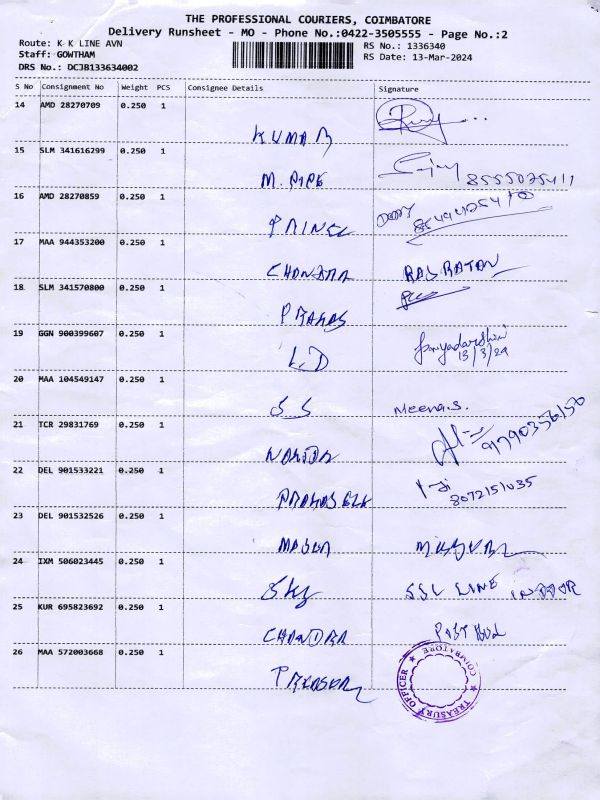 THE PROFESSIONAL COURIERS, COIMBATORE
Delivery Runsheet - MO - Phone No.:0422-3505555 - Page No.:2
Route: K K LINE AVN
Staff: GOWTHAM
DRS No.: DCJB133634002
RS No.: 1336340
RS Date: 13-Mar-2024
S No Consignment No Weight PCS Consignee Details Signature
14 AMD 28270709 0.250 1
KUMAR
15 SLM 341616299 0.250 1
M. PIPE 8555075411
16 AMD 28270859 0.250 1
17 MAA 944353200 0.250 1
RAJ RATAN
18 SLM 341570800 0.250 1
19 GGN 900399607 0.250 1
L.D Priyadarshini
13/3/24
20 MAA 104549147 0.250 1
S.S Meena.S.
21 TCR 29831769 0.250 1
9790356150
22 DEL 901533221 0.250 1
8072151035
23 DEL 901532526 0.250 1
24 IXM 506023445 0.250 1
SSV LINE INDOOR
25 KUR 695823692 0.250 1
CHANDRA
26 MAA 572003668 0.250 1
TREASURY OFFICER ★ COIMBATORE ★